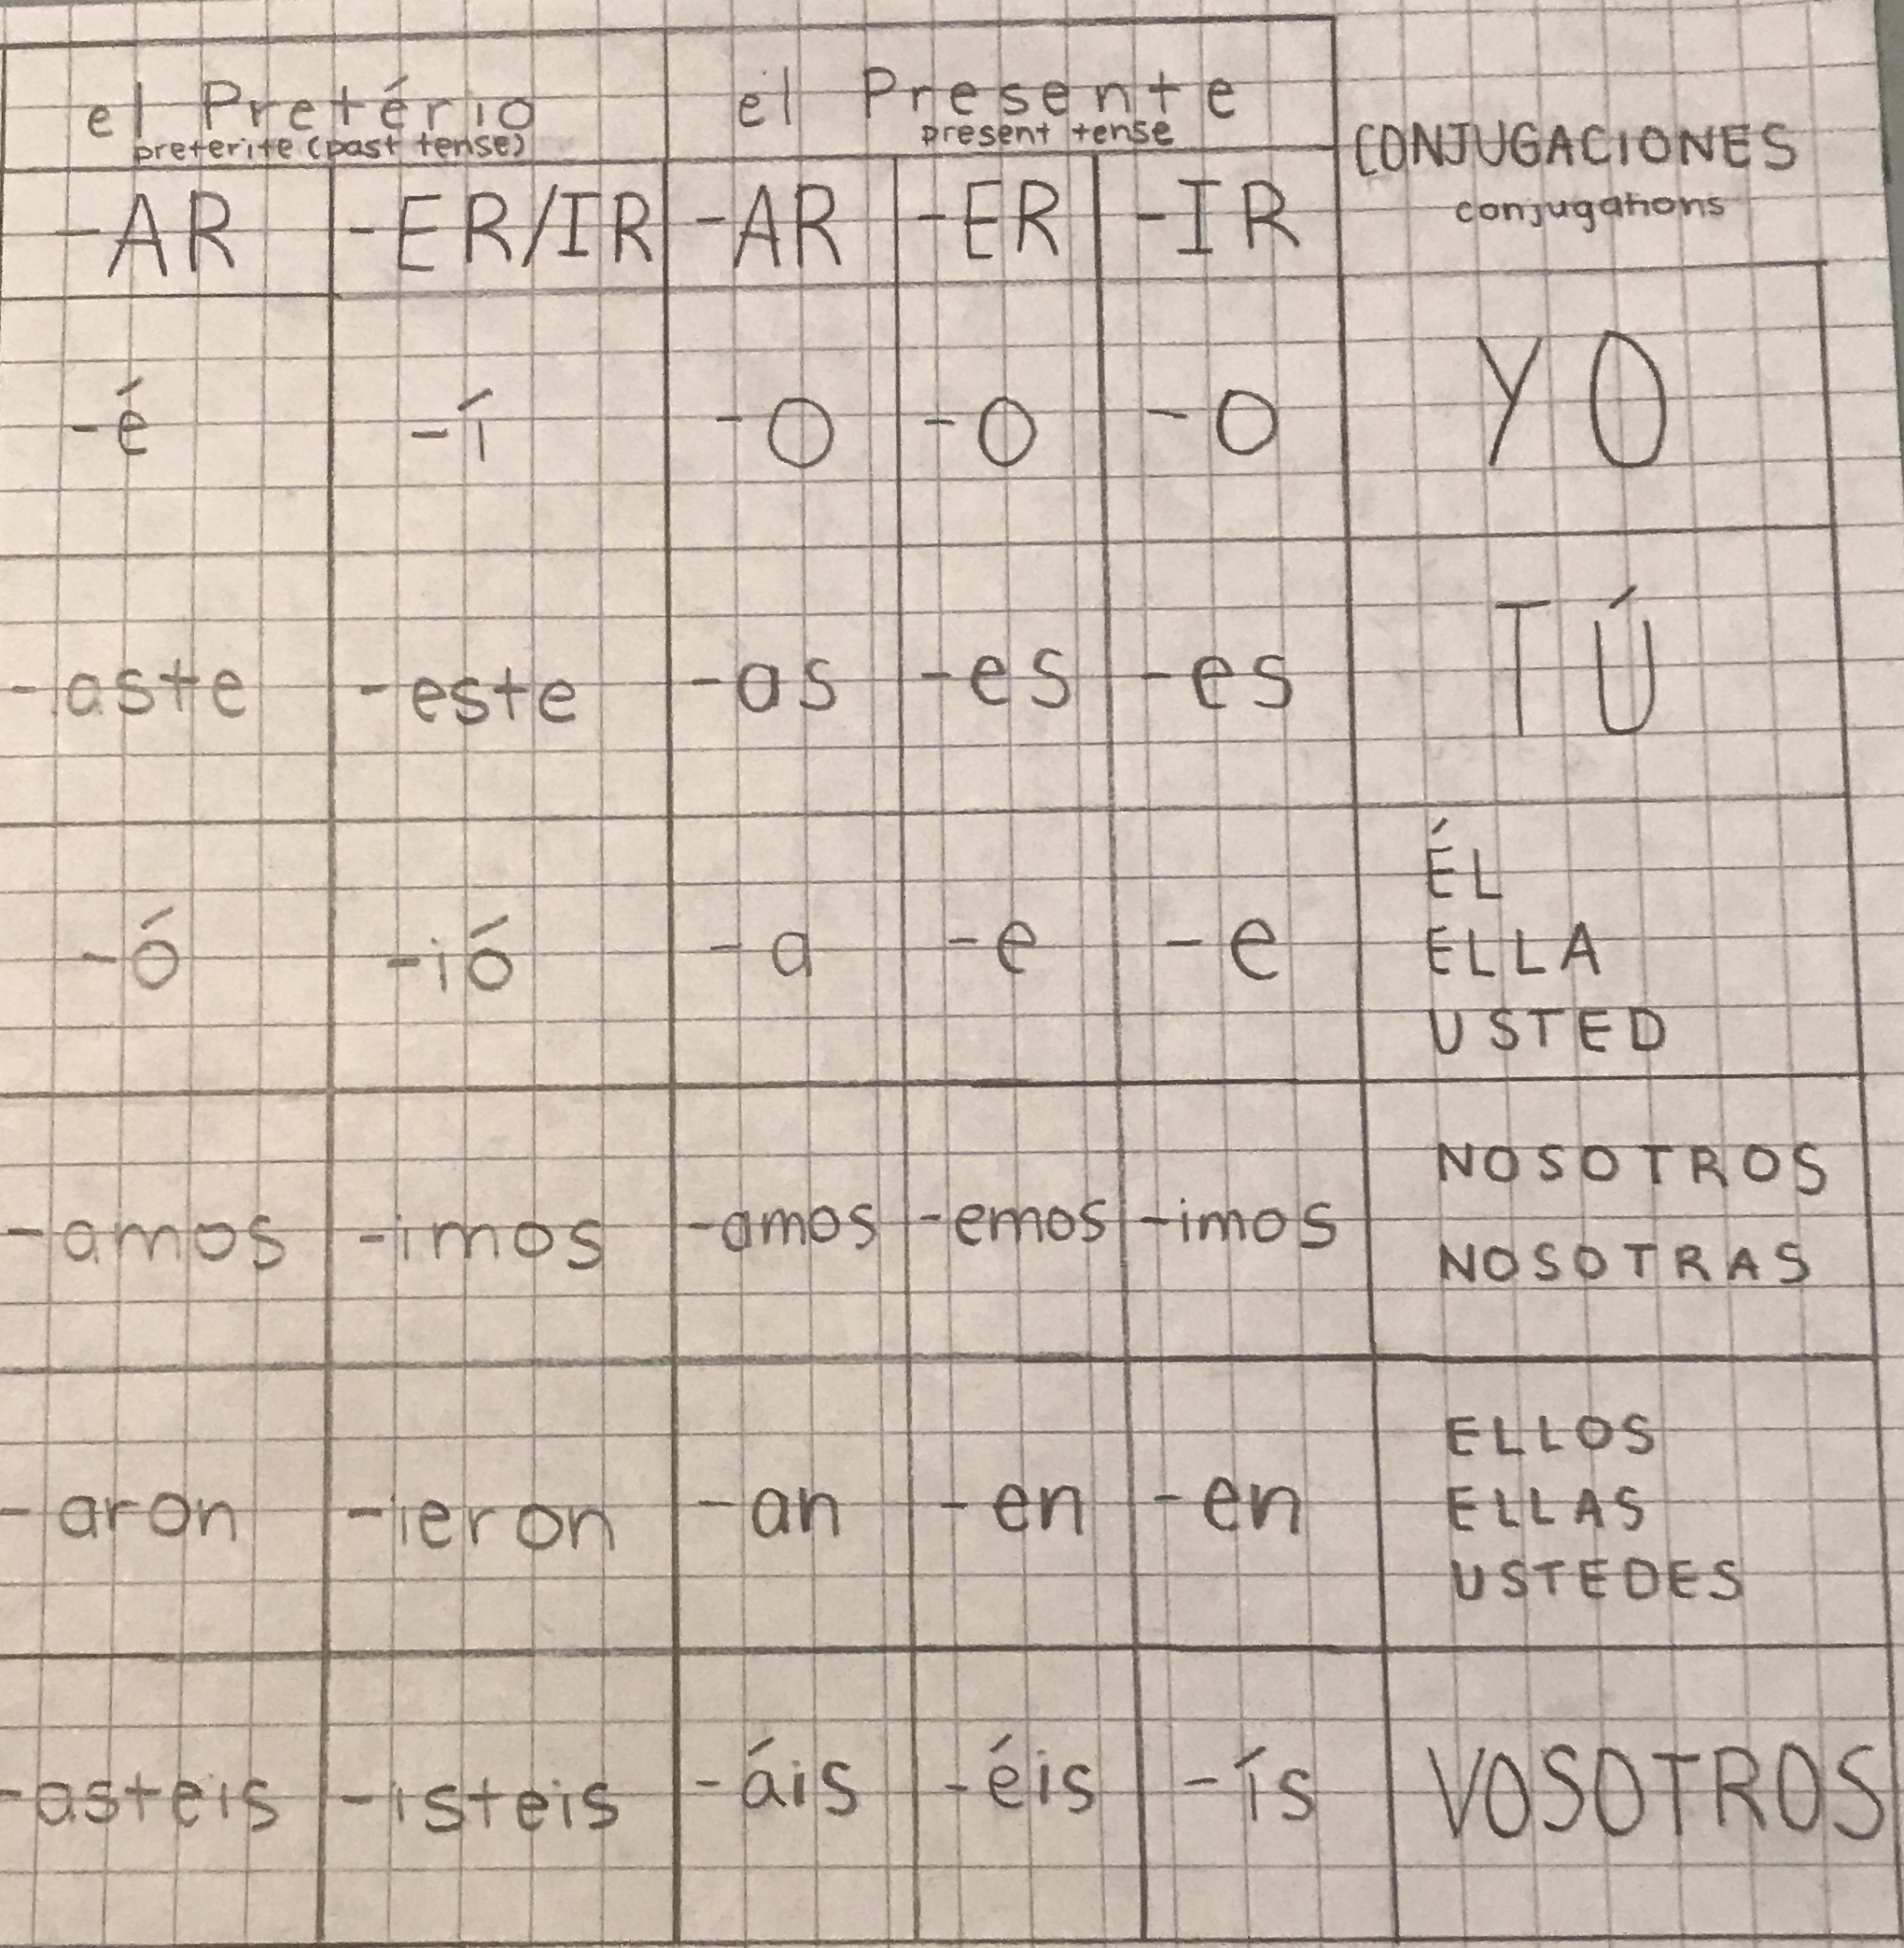 el Pretério el Presente
preterite (past tense) present tense CONJUGACIONES
-AR -ER/IR -AR -ER -IR conjugations
-é -í -o -o -o YO
-aste -este -as -es -es TÚ
ÉL
-ó -ió -a -e -e ELLA
USTED
NOSOTROS
-amos -imos -amos -emos -imos
NOSOTRAS
ELLOS
-aron -ieron -an -en -en ELLAS
USTEDES
-asteis -isteis -áis -éis -ís VOSOTROS